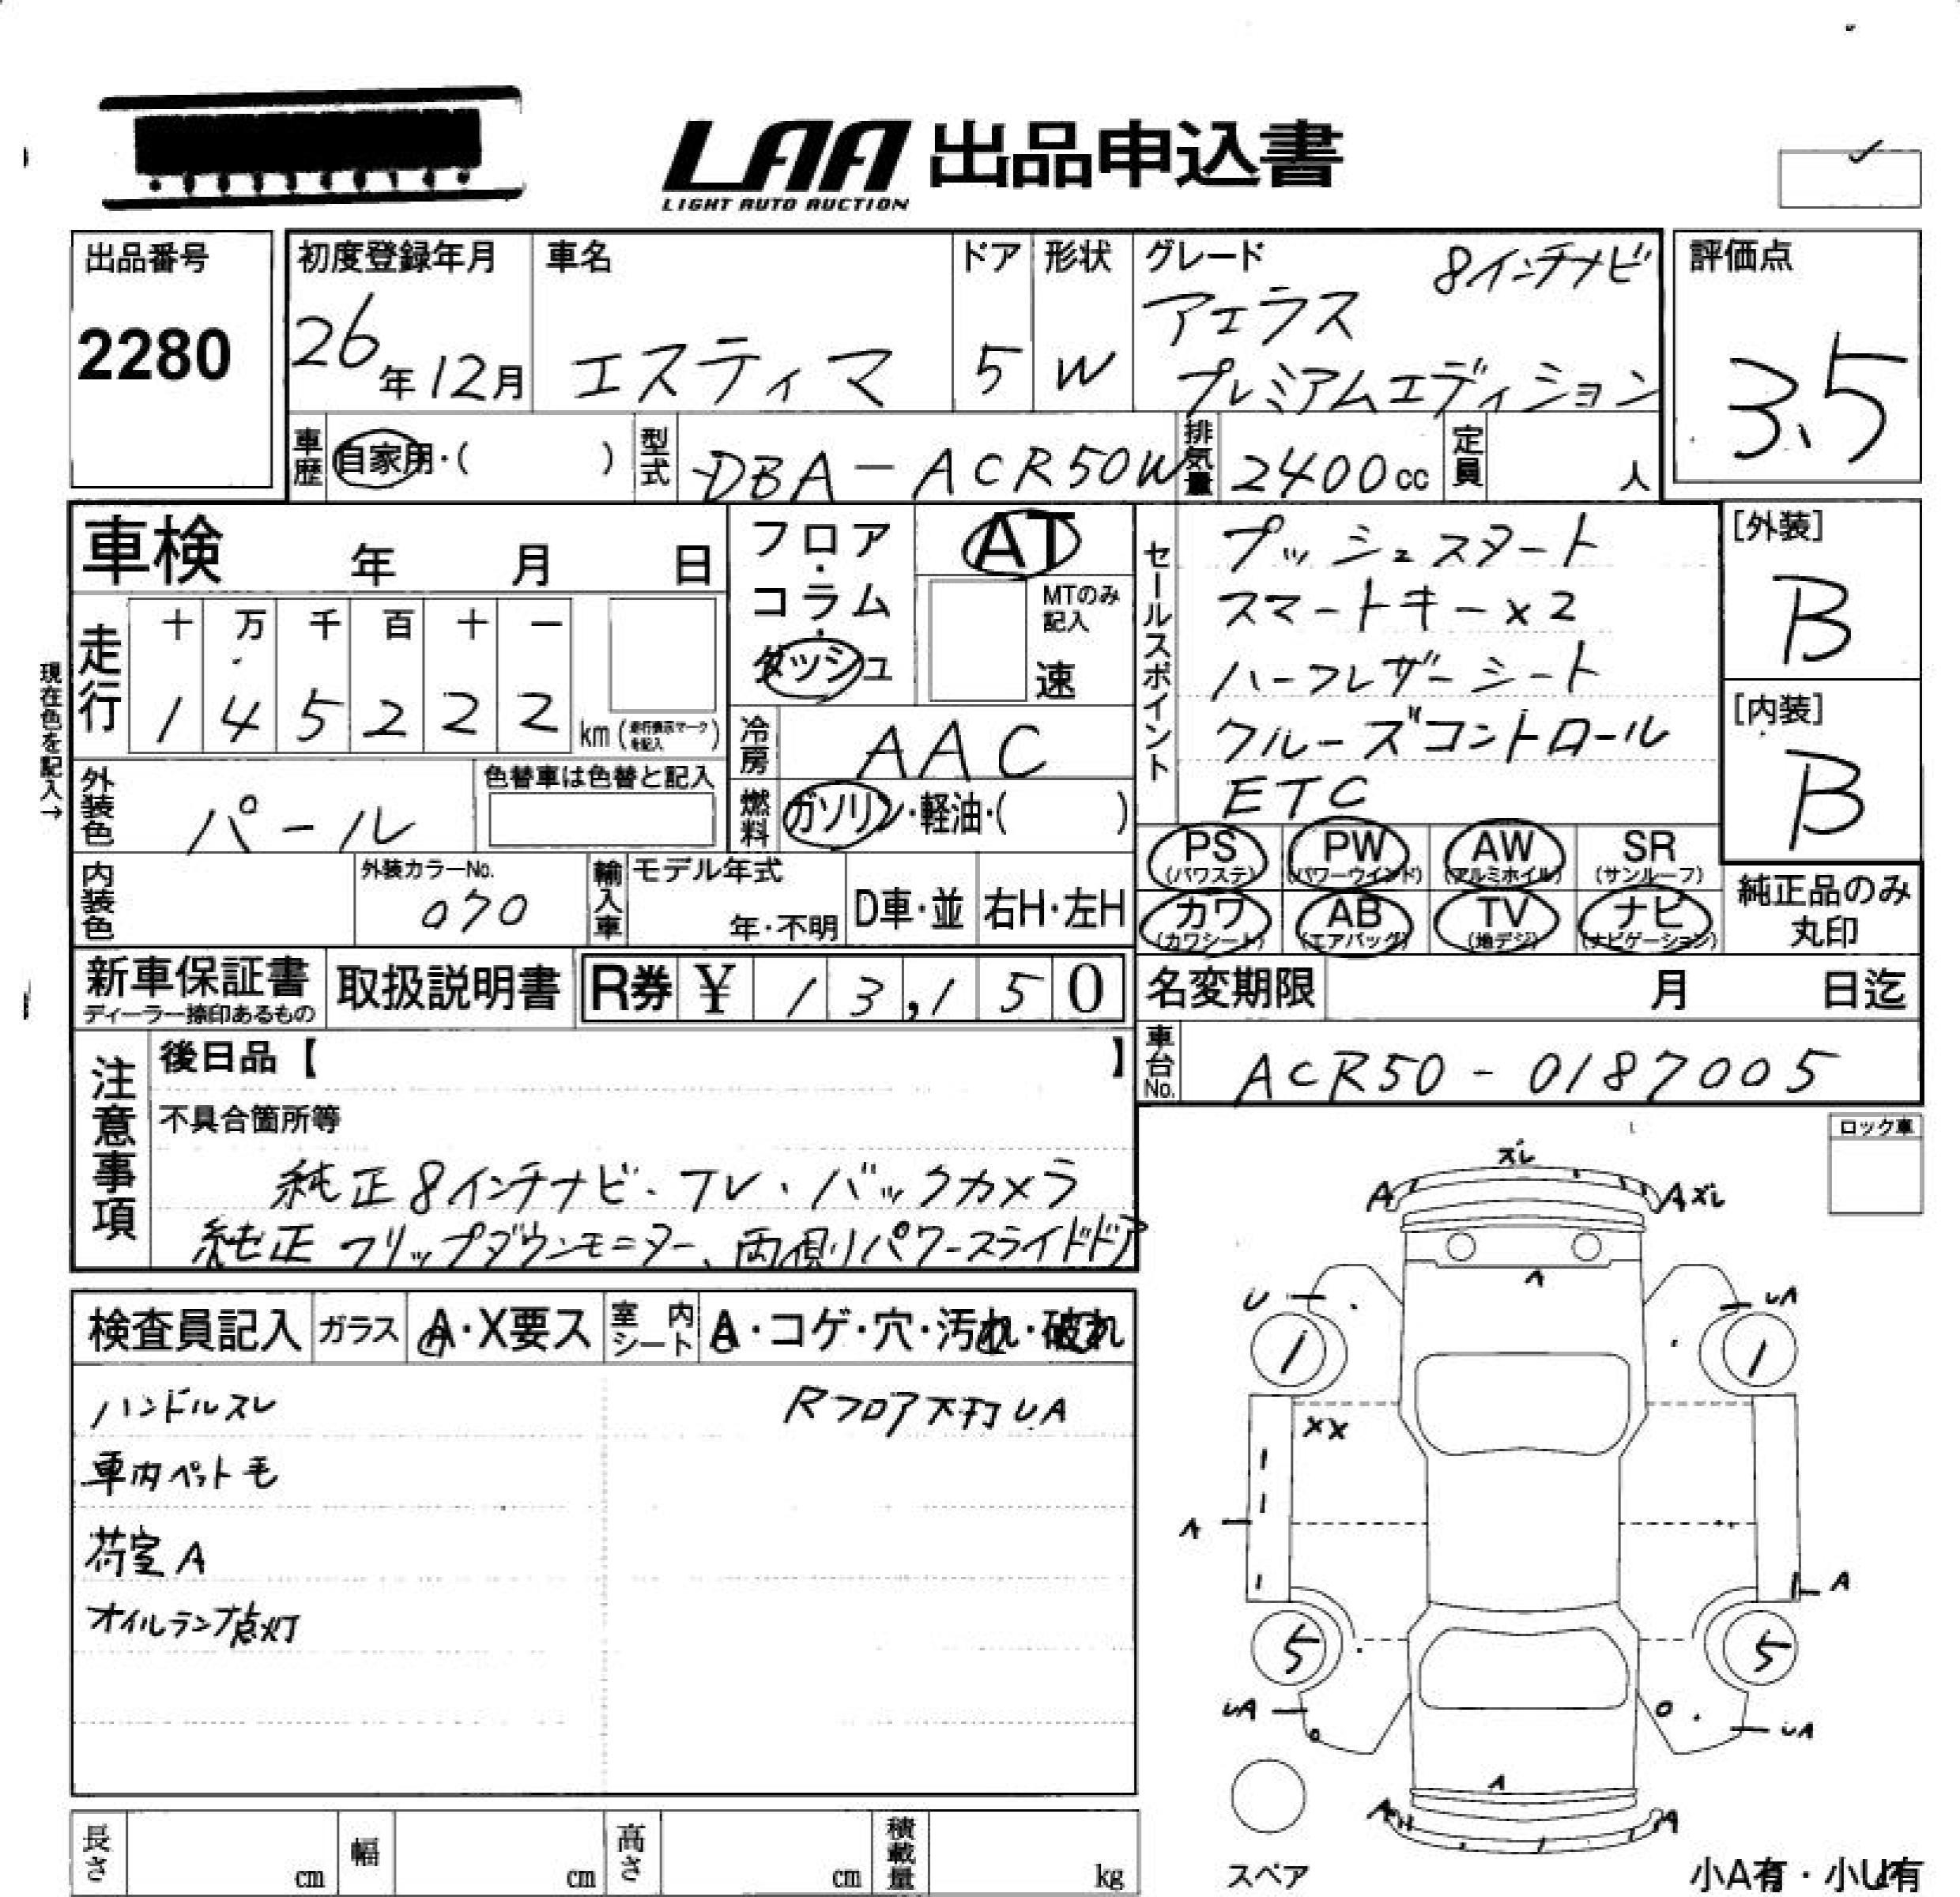 LAA 出品申込書
LIGHT AUTO AUCTION
出品番号
2280
初度登録年月
26年12月
車名
エスティマ
ドア
5
形状
W
グレード
8インチナビ
アエラス
プレミアムエディション
評価点
3.5
車歴
自家用・( )
型式
DBA-ACR50W
排気量
2400cc
定員
人
車検 年 月 日
フロア・コラム・ダッシュ
AT
MTのみ記入
速
現在色を記入→
走行
十 万 千 百 十 一
1 4 5 2 2 2
km(走行表示マークを記入)
冷房
AAC
外装色
パール
色替車は色替と記入
燃料
ガソリン・軽油・( )
セールスポイント
プッシュスタート
スマートキー×2
ハーフレザーシート
クルーズコントロール
ETC
[外装]
B
[内装]
B
PS (パワステ)
PW (パワーウインド)
AW (アルミホイル)
SR (サンルーフ)
カワ (カワシート)
AB (エアバッグ)
TV (地デジ)
ナビ (ナビゲーション)
純正品のみ丸印
内装色
外装カラーNo.
070
輸入車
モデル年式
年・不明
D車・並
右H・左H
新車保証書
ディーラー捺印あるもの
取扱説明書
R券 ¥ 13,150
名変期限 月 日迄
車台No.
ACR50-0187005
注意事項
後日品【 】
不具合箇所等
純正8インチナビ、フレ、バックカメラ
純正フリップダウンモニター、両側パワースライドドア
ロック車
検査員記入
ガラス
A・X要ス
室内シート
A・コゲ・穴・汚れ・破れ
ハンドルスレ
Rフロア下打UA
車内ペット毛
荷室A
オイルランプ点灯
ズレ
A
Aズレ
A
U
UA
1
1
XX
A
A
5
5
UA
UA
A
A
A
スペア
小A有・小U有
長さ cm
幅 cm
高さ cm
積載量 kg